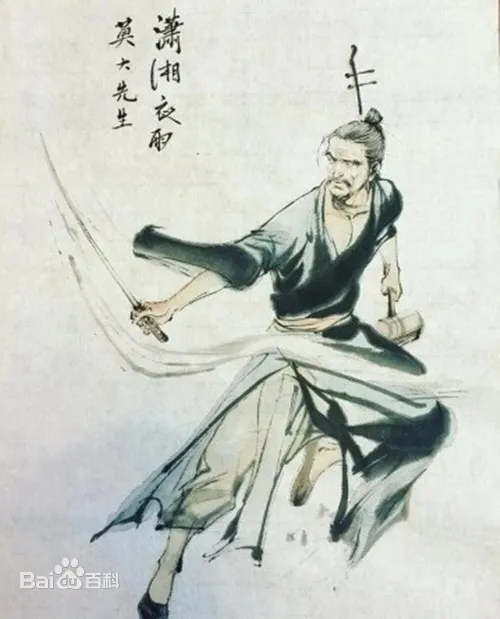 瀟湘夜雨
莫大先生
Baidu百科